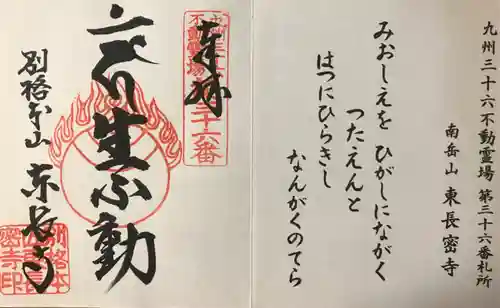 九州三十六不動霊場 第三十六番札所
南岳山 東長密寺
みおしえを ひがしにながく
つたえんと
はつにひらきし
なんがくのてら
奉拝
九州三十六
不動霊場
第三十六番
不動
別格本山 東長寺